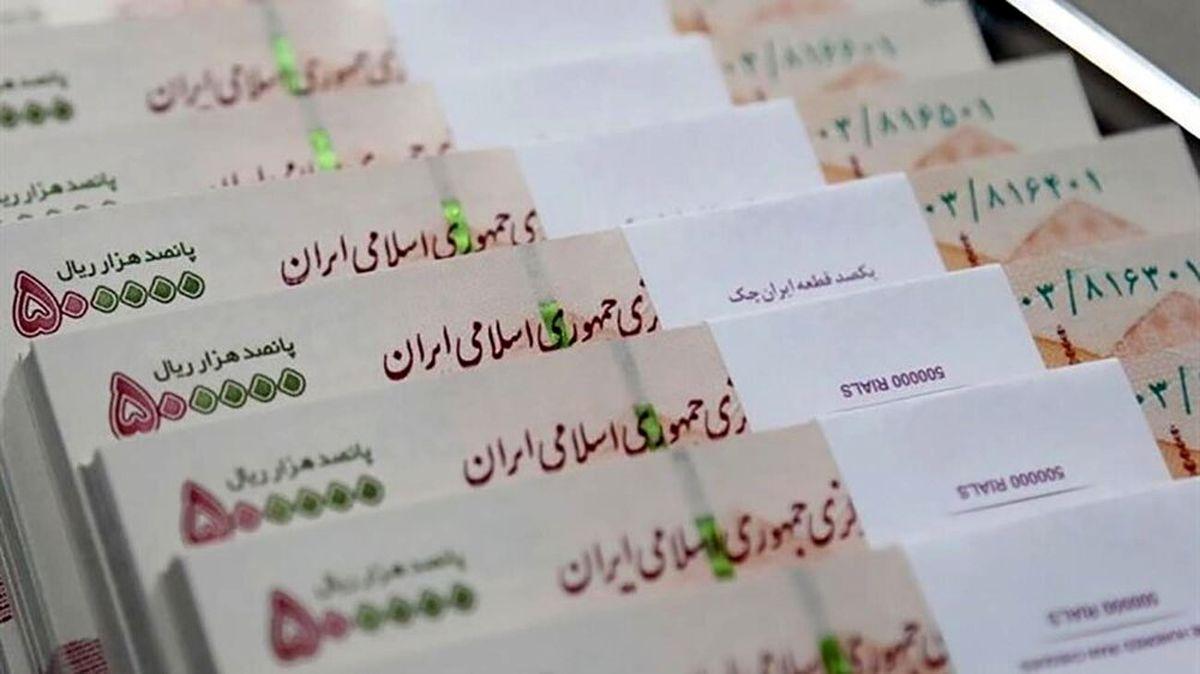 پانصد هزار ریال
جمهوری اسلامی ایران
۰۳/۸۱۶۶۰۱
پانصد هزار ریال
۰۳/۸۱۶۵۰۱
پانصد هزار ریال
۵۰۰۰۰۰
ی جمهوری اسلامی ایران
۰۳/۸۱۶۴۰۱
یکصد قطعه ایران چک
پانصد هزار ریال
۵۰۰۰۰۰
زی جمهوری اسلامی ایران
۰۳/۸۱۶۳۰۱
500000 RIALS
پانصد هزار ریال
۵۰۰۰۰۰
زی جمهوری اسلامی ایران
۰۳/
500000 RIALS
پانصد هزار ریال
۵۰۰۰۰۰
کزی جمهوری اسلامی ایران
500000 RIALS
HUNDRED IRAN CHEQUES